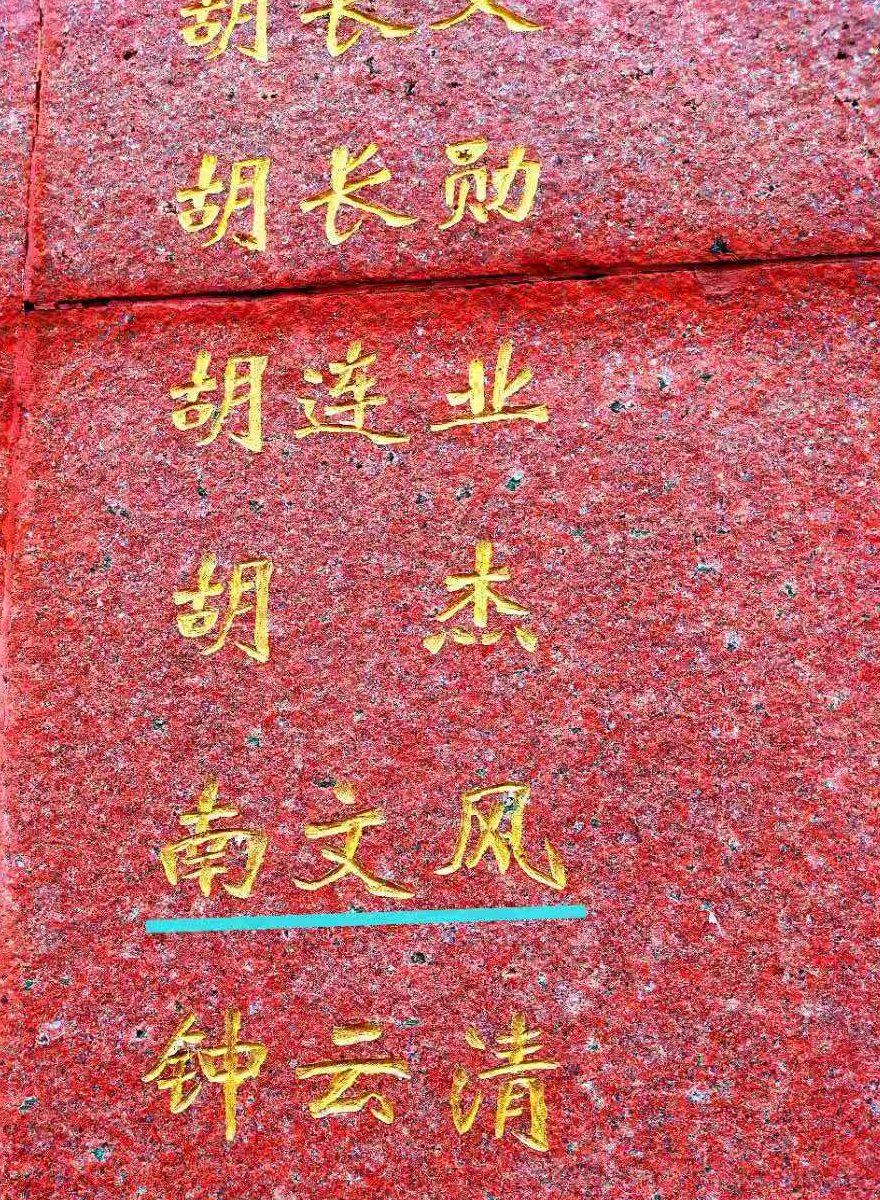 胡长文
胡长勋
胡连业
胡 杰
南文风
钟云清